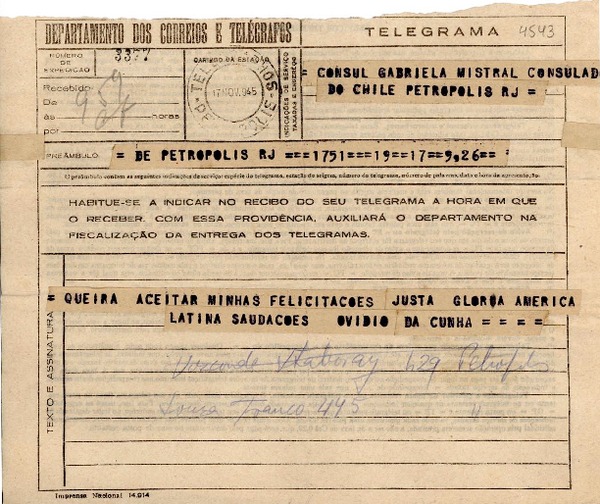 DEPARTAMENTO DOS CORREIOS E TELÉGRAFOS
TELEGRAMA 4543
NÚMERO DE EXPEDIÇÃO
3377
CARIMBO DA ESTAÇÃO
17 NOV. 945
INDICAÇÕES DE SERVIÇO TAXADAS E ENDEREÇO
= CONSUL GABRIELA MISTRAL CONSULADO
DO CHILE PETROPOLIS RJ =
Recebido
De
às horas
por
PREÂMBULO = DE PETROPOLIS RJ ===1751 ==19 ==17==9,26==
O preâmbulo contém as seguintes indicações de serviço: espécie do telegrama, estação de origem, número do telegrama, número de palavras, data e hora da apresentação.
HABITUE-SE A INDICAR NO RECIBO DO SEU TELEGRAMA A HORA EM QUE
O RECEBER. COM ESSA PROVIDÊNCIA, AUXILIARÁ O DEPARTAMENTO NA
FISCALIZAÇÃO DA ENTREGA DOS TELEGRAMAS.
TEXTO E ASSINATURA
= QUEIRA ACEITAR MINHAS FELICITACOES JUSTA GLORIA AMERICA
LATINA SAUDACOES OVIDIO DA CUNHA = = = =
Visconde Itaboray 629 Petropolis
Souza Franco 445 "
Imprensa Nacional 14.914